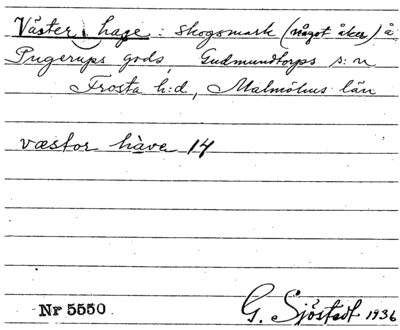 Väster hage : skogsmark (något åker) å
Pugerups gods, Gudmundtorps s:n
Frosta h:d, Malmöhus län
væstor hàve 14
Nr 5550
G. Sjöstedt 1936